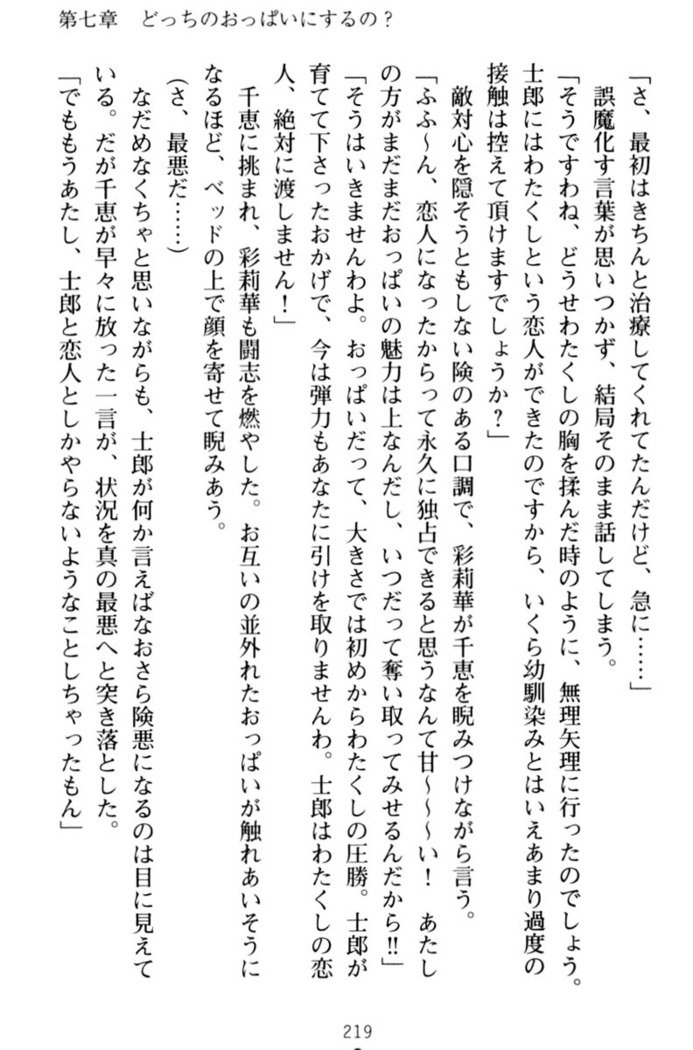 第七章　どっちのおっぱいにするの？
「さ、最初はきちんと治療してくれてたんだけど、急に……」
誤魔化す言葉が思いつかず、結局そのまま話してしまう。
「そうですわね、どうせわたくしの胸を揉んだ時のように、無理矢理に行ったのでしょう。
士郎にはわたくしという恋人ができたのですから、いくら幼馴染みとはいえあまり過度の
接触は控えて頂けますでしょうか？」
敵対心を隠そうともしない険のある口調で、彩莉華が千恵を睨みつけながら言う。
「ふふ～ん、恋人になったからって永久に独占できると思うなんて甘～～～い！　あたし
の方がまだまだおっぱいの魅力は上なんだし、いつだって奪い取ってみせるんだから!!」
「そうはいきませんわよ。おっぱいだって、大きさでは初めからわたくしの圧勝。士郎が
育てて下さったおかげで、今は弾力もあなたに引けを取りませんわ。士郎はわたくしの恋
人、絶対に渡しません！」
千恵に挑まれ、彩莉華も闘志を燃やした。お互いの並外れたおっぱいが触れあいそうに
なるほど、ベッドの上で顔を寄せて睨みあう。
（さ、最悪だ……）
なだめなくちゃと思いながらも、士郎が何か言えばなおさら険悪になるのは目に見えて
いる。だが千恵が早々に放った一言が、状況を真の最悪へと突き落とした。
「でももうあたし、士郎と恋人としかやらないようなことしちゃったもん」
219